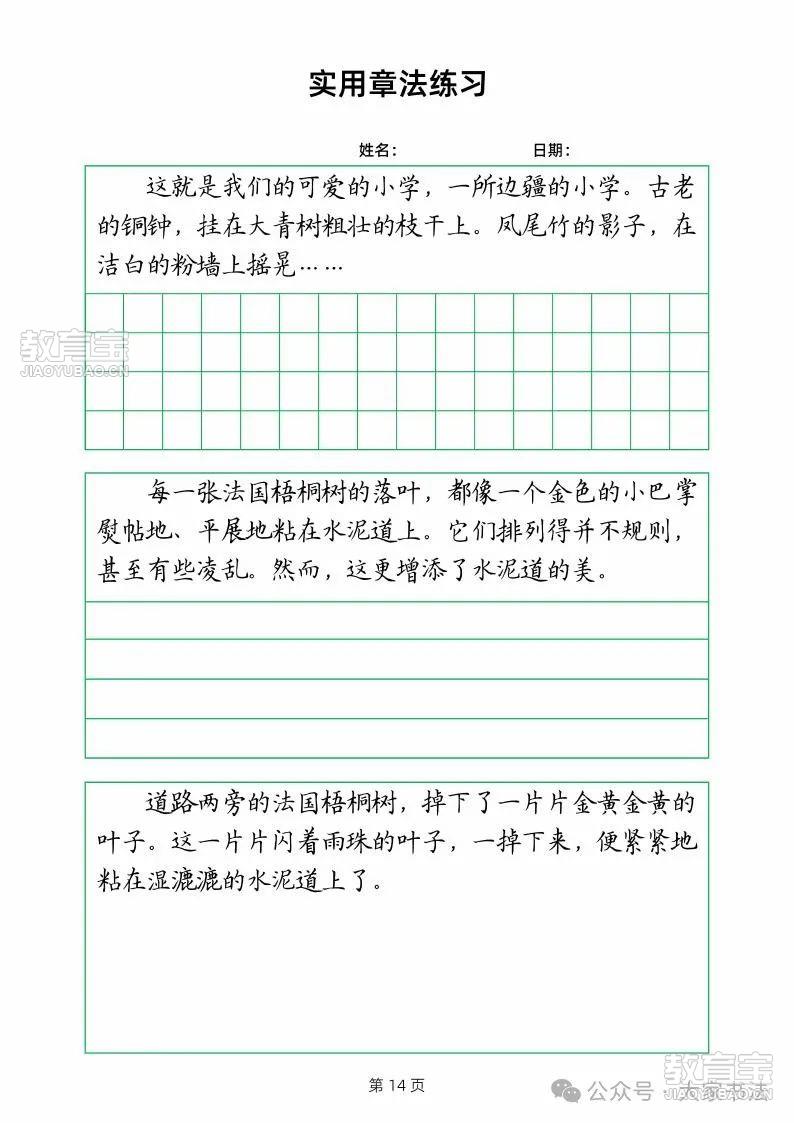 实用章法练习
姓名： 日期：
这就是我们的可爱的小学，一所边疆的小学。古老
的铜钟，挂在大青树粗壮的枝干上。凤尾竹的影子，在
洁白的粉墙上摇晃……
教育宝
JIAOYUBAO.CN
每一张法国梧桐树的落叶，都像一个金色的小巴掌
熨帖地、平展地粘在水泥道上。它们排列得并不规则，
甚至有些凌乱。然而，这更增添了水泥道的美。
道路两旁的法国梧桐树，掉下了一片片金黄金黄的
叶子。这一片片闪着雨珠的叶子，一掉下来，便紧紧地
粘在湿漉漉的水泥道上了。
第 14 页
教育宝
JIAOYUBAO.CN
公众号 · 大家书法